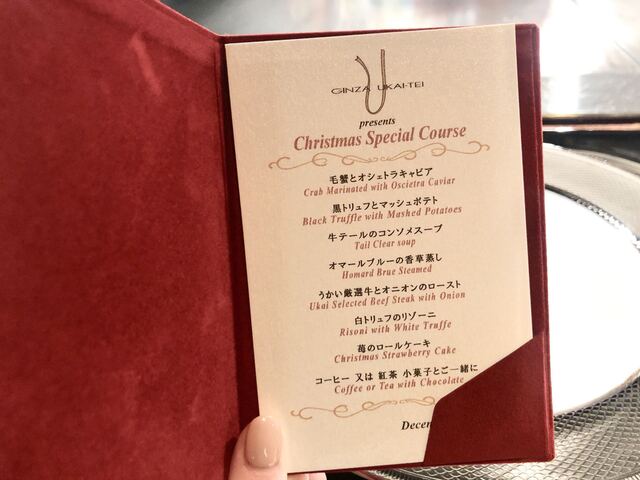 GINZA UKAI-TEI
presents
Christmas Special Course
毛蟹とオシェトラキャビア
Crab Marinated with Oscietra Caviar
黒トリュフとマッシュポテト
Black Truffle with Mashed Potatoes
牛テールのコンソメスープ
Tail Clear soup
オマールブルーの香草蒸し
Homard Brue Steamed
うかい厳選牛とオニオンのロースト
Ukai Selected Beef Steak with Onion
白トリュフのリゾーニ
Risoni with White Truffe
苺のロールケーキ
Christmas Strawberry Cake
コーヒー 又は 紅茶 小菓子とご一緒に
Coffee or Tea with Chocolate